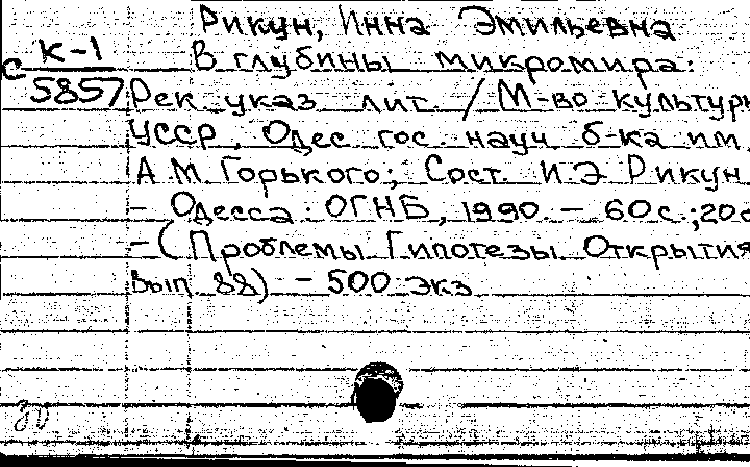 Рикун, Инна Эмильевна
К-1 В глубины микромира:
с
5857 Рек указ лит. / М-во культуры
УССР, Одес гос. науч б-ка им.
А.М. Горького; Сост. И.Э Рикун
- Одесса: ОГНБ, 1990. - 60с.; 20с
- (Проблемы Гипотезы Открытия
Вып. 88) - 500 экз
30